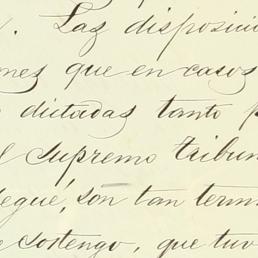 . Las disposici
ones que en casos
dictadas tanto p
l supremo tribun
legué, son tan term
sostengo, que tuv